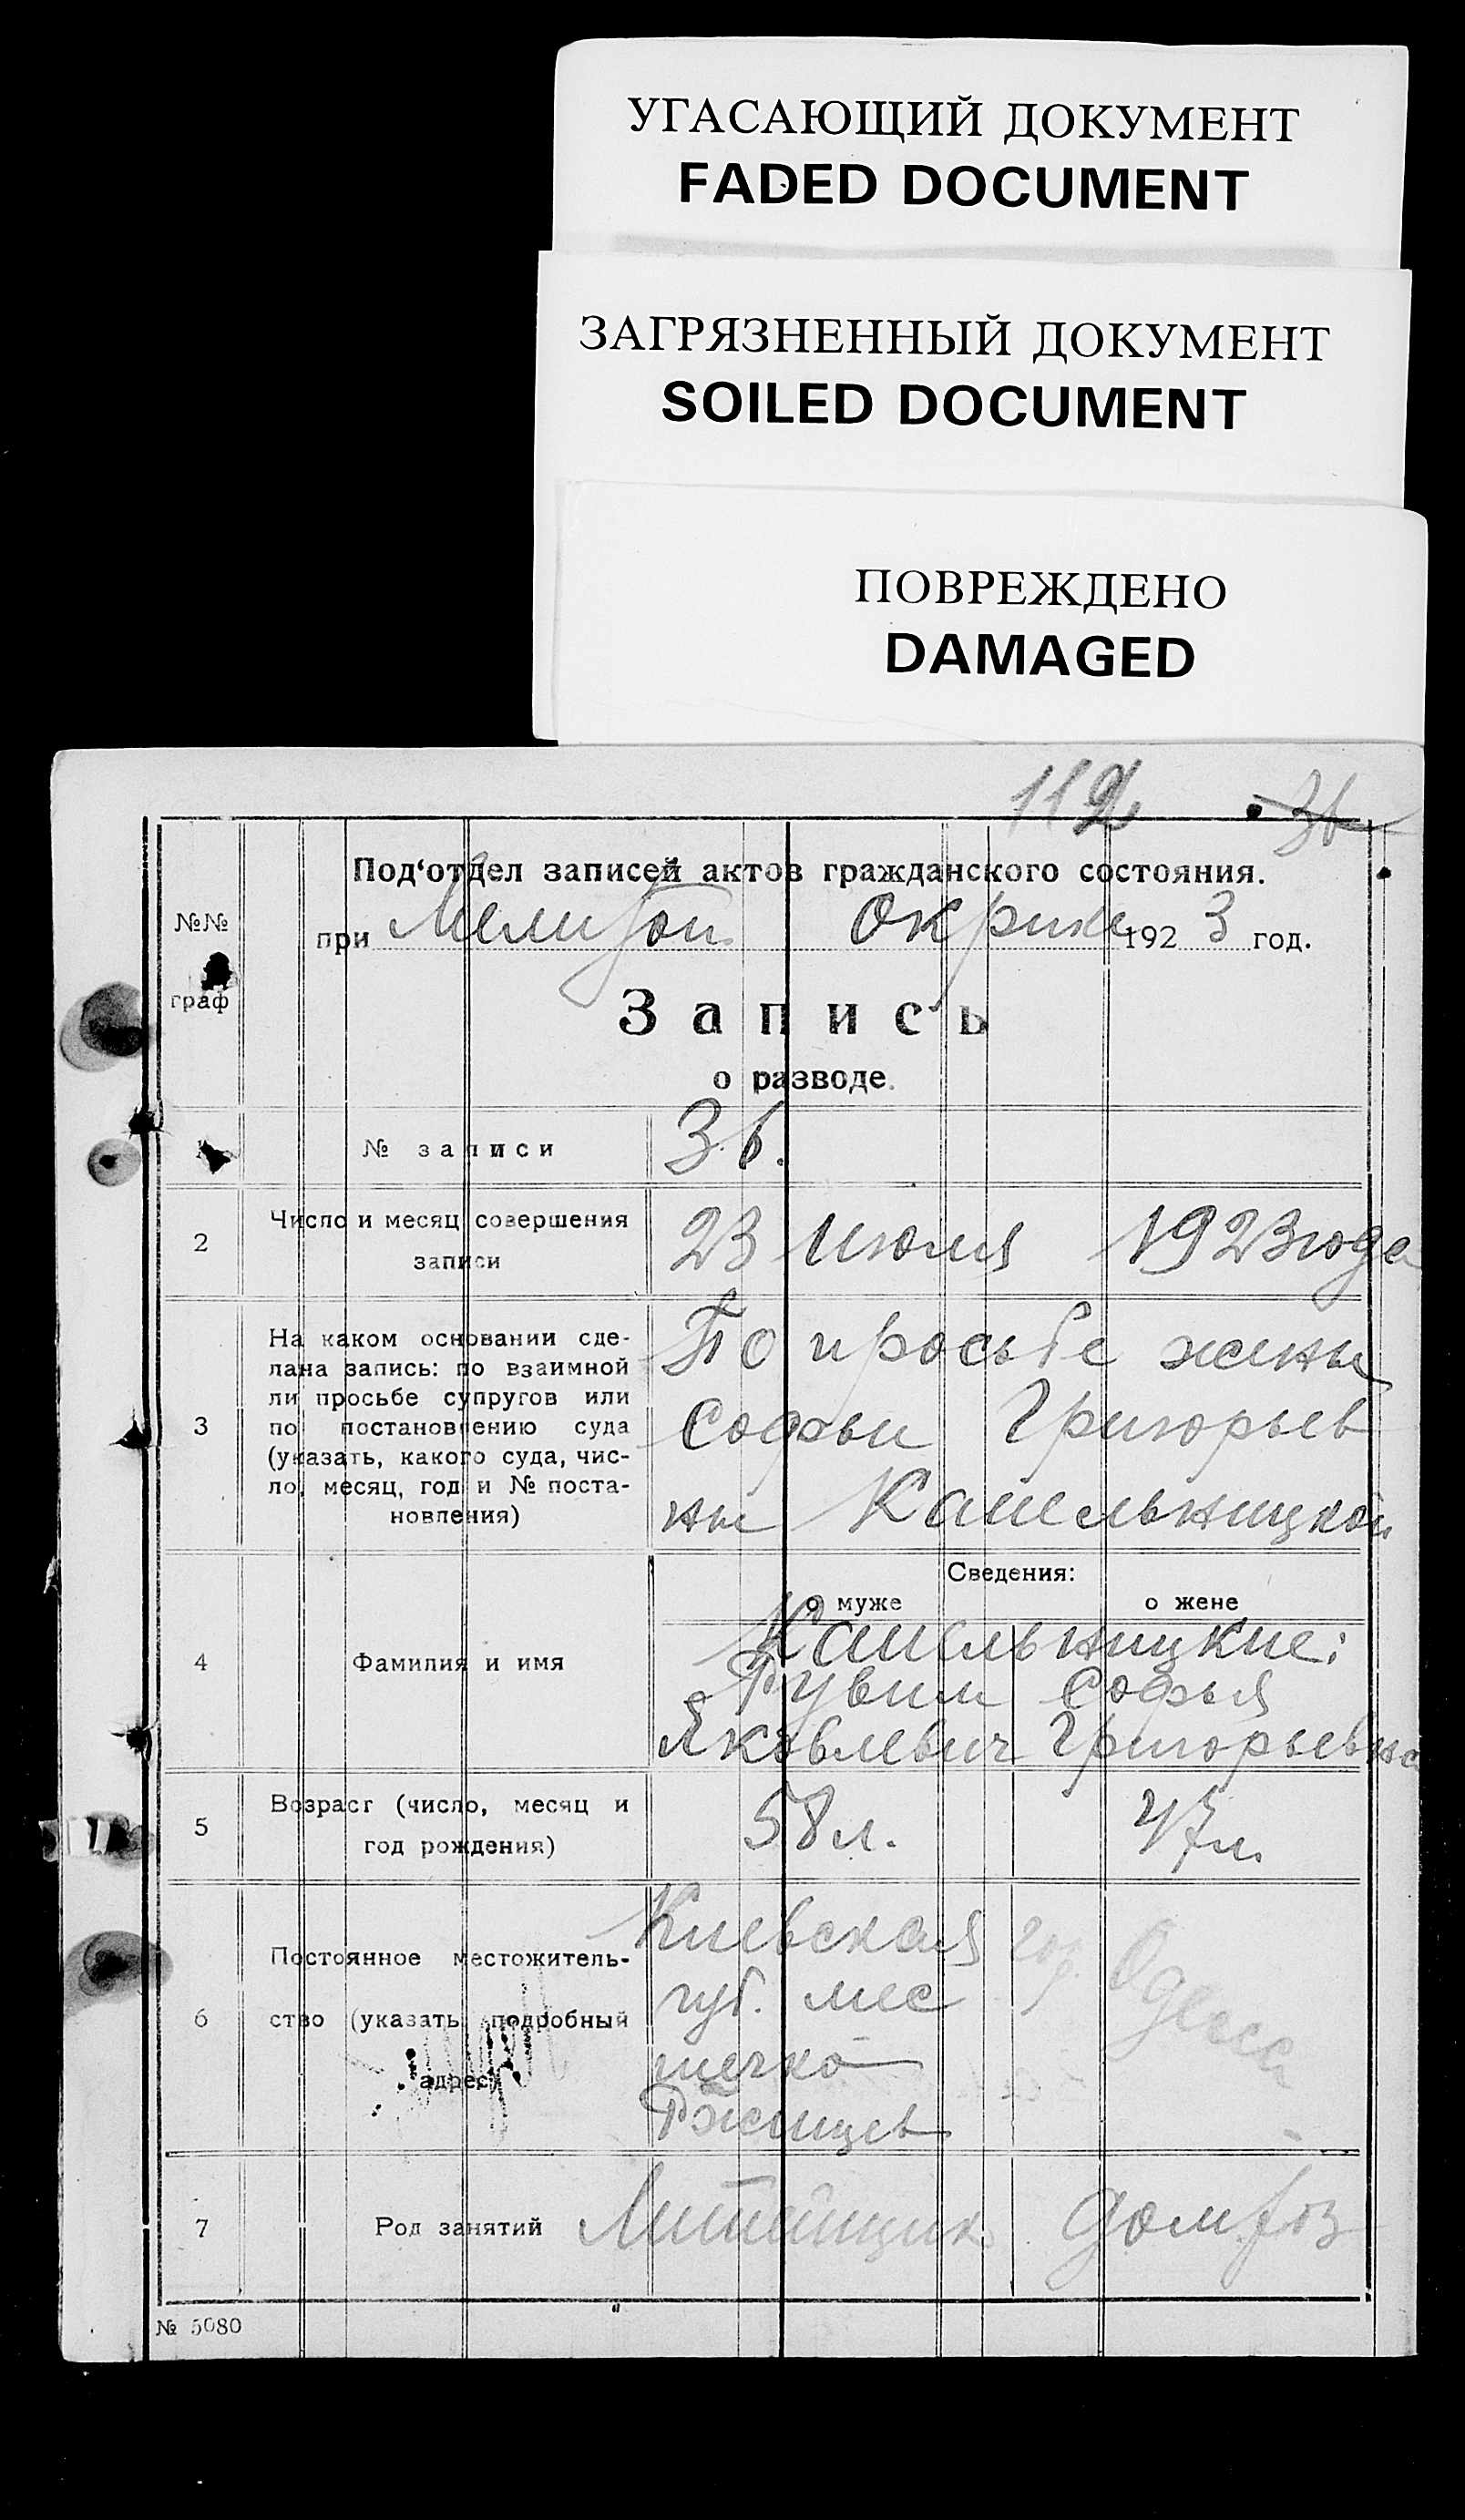 УГАСАЮЩИЙ ДОКУМЕНТ
FADED DOCUMENT
ЗАГРЯЗНЕННЫЙ ДОКУМЕНТ
SOILED DOCUMENT
ПОВРЕЖДЕНО
DAMAGED
112 36
Под‘отдел записей актов гражданского состояния.
№№
граф
при Мелитоп. Окрике 192 3 год.
Запись
о разводе.
№ записи 36.
2 Число и месяц совершения
записи
23 июля 1923 года
3 На каком основании сде-
лана запись: по взаимной
ли просьбе супругов или
по постановлению суда
(указать, какого суда, чис-
ло, месяц, год и № поста-
новления)
По просьбе жены
Софьи Григорьев
ны Капельницкой
Сведения:
о муже о жене
4 Фамилия и имя
Капельницкие:
Рувим Софья
Яковлевич Григорьевна
5 Возраст (число, месяц и
год рождения)
58 л. 47 л.
6 Постоянное местожитель-
ство (указать подробный
адрес)
Киевская гор. Одесса
губ. мес
течко
Ржищев
7 Род занятий Литейщик домхоз
№ 5080